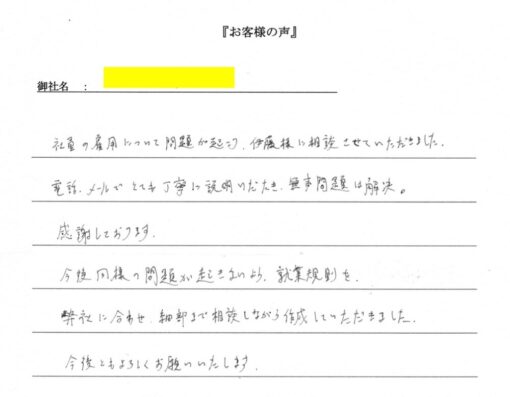 『お客様の声』
御社名　：
社員の雇用について問題が起こり、伊藤様に相談させていただきました。
電話、メールでとても丁寧に説明いただき、無事問題は解決。
感謝しております。
今後同様の問題が起きないよう、就業規則を、
弊社に合わせ、細部まで相談しながら作成していただきました。
今後ともよろしくお願いいたします。